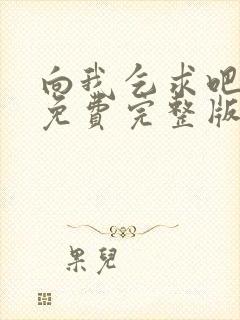 向我乞求吧
免費完整版
果兒